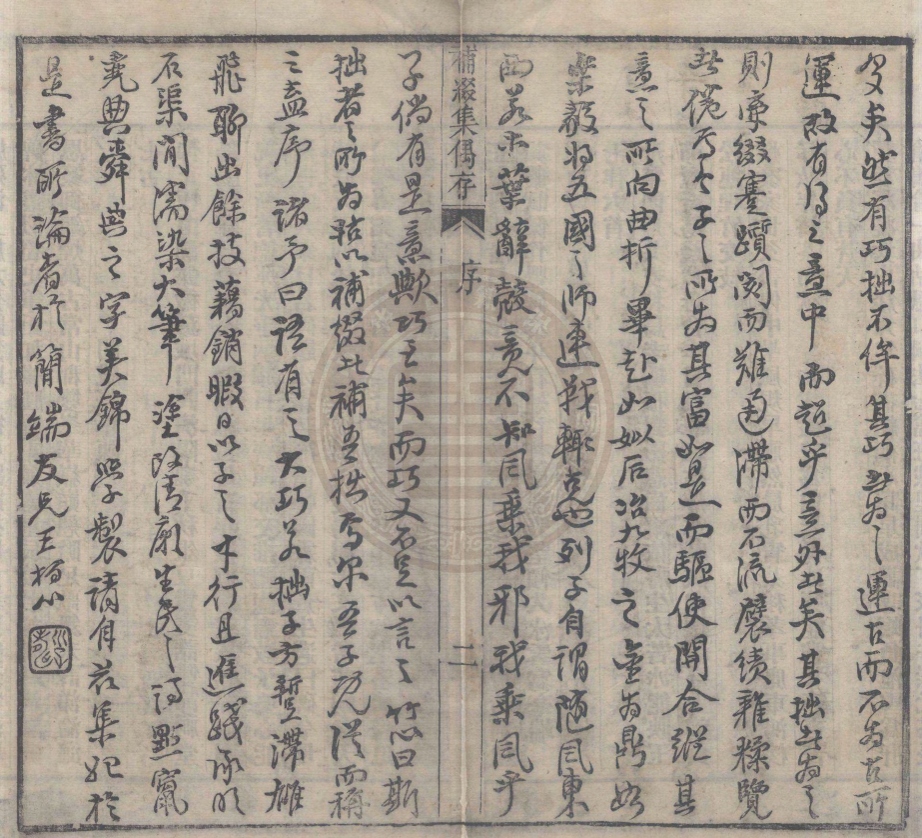 矣然有巧拙不侔其巧者為之運古而不為古所
運故有得之意中而超乎意外者矣其拙者為之
則牽綴蹇躓閡而難通滯而不流襞績雜糅覽
者倦焉今子之所為其富如是而驅使開合從其
意之所向曲折畢赴如姒后冶九牧之金為鼎如
樂毅將五國之師連戰輒克也列子自謂隨風東
西若木葉幹殼竟不知風乘我邪我乘風乎
補綴集偶存
序
二
子倘有是意歟巧至矣而巧又不足以言之竹心曰斯
拙者之所為耳以補綴者補吾拙焉爾吾子既從而稱
之盍序諸予曰語有之大巧若拙子方暫滯雄
飛聊出餘技藉銷暇日以子之才行且進踐承明
石渠間濡染大筆塗改清廟生民之詩點竄
堯典舜典之字美錦學製請自茲集始於
是書所論者於簡端友兄王柏心